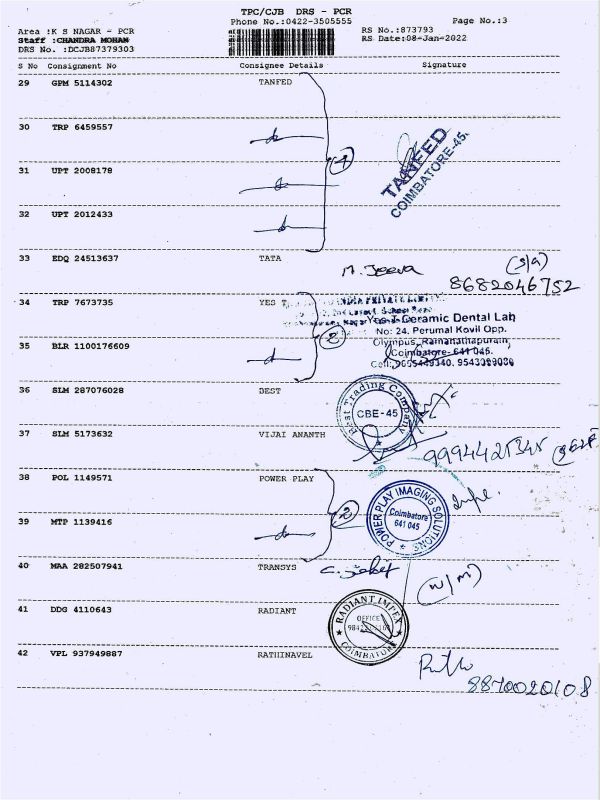 TPC/CJB DRS - PCR
Phone No.:0422-3505555
Page No.:3
Area :K S NAGAR - PCR
RS No.:873793
Staff :CHANDRA MOHAN
RS Date:08-Jan-2022
DRS No. :DCJB87379303
S No Consignment No Consignee Details Signature
29 GPM 5114302 TANFED
30 TRP 6459557
4
TANFED
COIMBATORE-45.
31 UPT 2008178
32 UPT 2012433
33 EDQ 24513637 TATA
M. Jeeva
(s/a)
8682046752
34 TRP 7673735 YES
Ceramic Dental Lab
No: 24. Perumal Kovil Opp.
Olympus, Ramanathapuram,
Coimbatore- 641 045.
2
35 BLR 1100176609
36 SLM 287076028 BEST
Best Trading Company
CBE-45
37 SLM 5173632 VIJAI ANANTH
38 POL 1149571 POWER PLAY
2
POWER PLAY IMAGING SOLUTIONS
Coimbatore
641 045
39 MTP 1139416
40 MAA 282507941 TRANSYS
(w/m)
41 DDG 4110643 RADIANT
RADIANT IMPEX
OFFICE
COIMBATORE
42 VPL 937949887 RATHINAVEL
8870020108